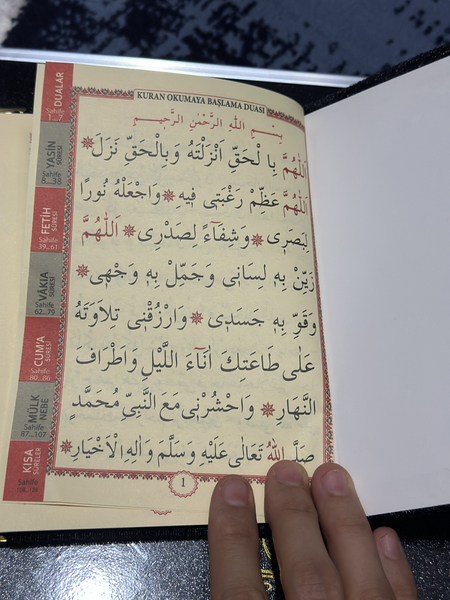 KURAN OKUMAYA BAŞLAMA DUASI
بِسْمِ اللهِ الرَّحْمٰنِ الرَّحِيمِ
اَللّٰهُمَّ بِالْحَقِّ اَنْزَلْتَهُ وَبِالْحَقِّ نَزَلَ ❋
اَللّٰهُمَّ عَظِّمْ رَغْبَتِى فِيهِ ❋ وَاجْعَلْهُ نُورًا
لِبَصَرِى ❋ وَشِفَاءً لِصَدْرِى ❋ اَللّٰهُمَّ
زَيِّنْ بِهِ لِسَانِى وَجَمِّلْ بِهِ وَجْهِى ❋
وَقَوِّ بِهِ جَسَدِى ❋ وَارْزُقْنِى تِلَاوَتَهُ
عَلٰى طَاعَتِكَ اٰنَاءَ اللَّيْلِ وَاَطْرَافَ
النَّهَارِ ❋ وَاحْشُرْنِى مَعَ النَّبِىِّ مُحَمَّدٍ
صَلَّى اللهُ تَعَالٰى عَلَيْهِ وَسَلَّمَ وَاٰلِهِ الْاَخْيَارِ ❋
1
DUALAR
Sahife
1...7
YASİN
SÛRESİ
Sahife
FETİH
SÛRESİ
Sahife
39...61
VÂKIA
SÛRESİ
Sahife
62...79
CUM'A
SÛRESİ
Sahife
80...86
MÜLK
NEBE
Sahife
87...107
KISA
SÛRELER
Sahife